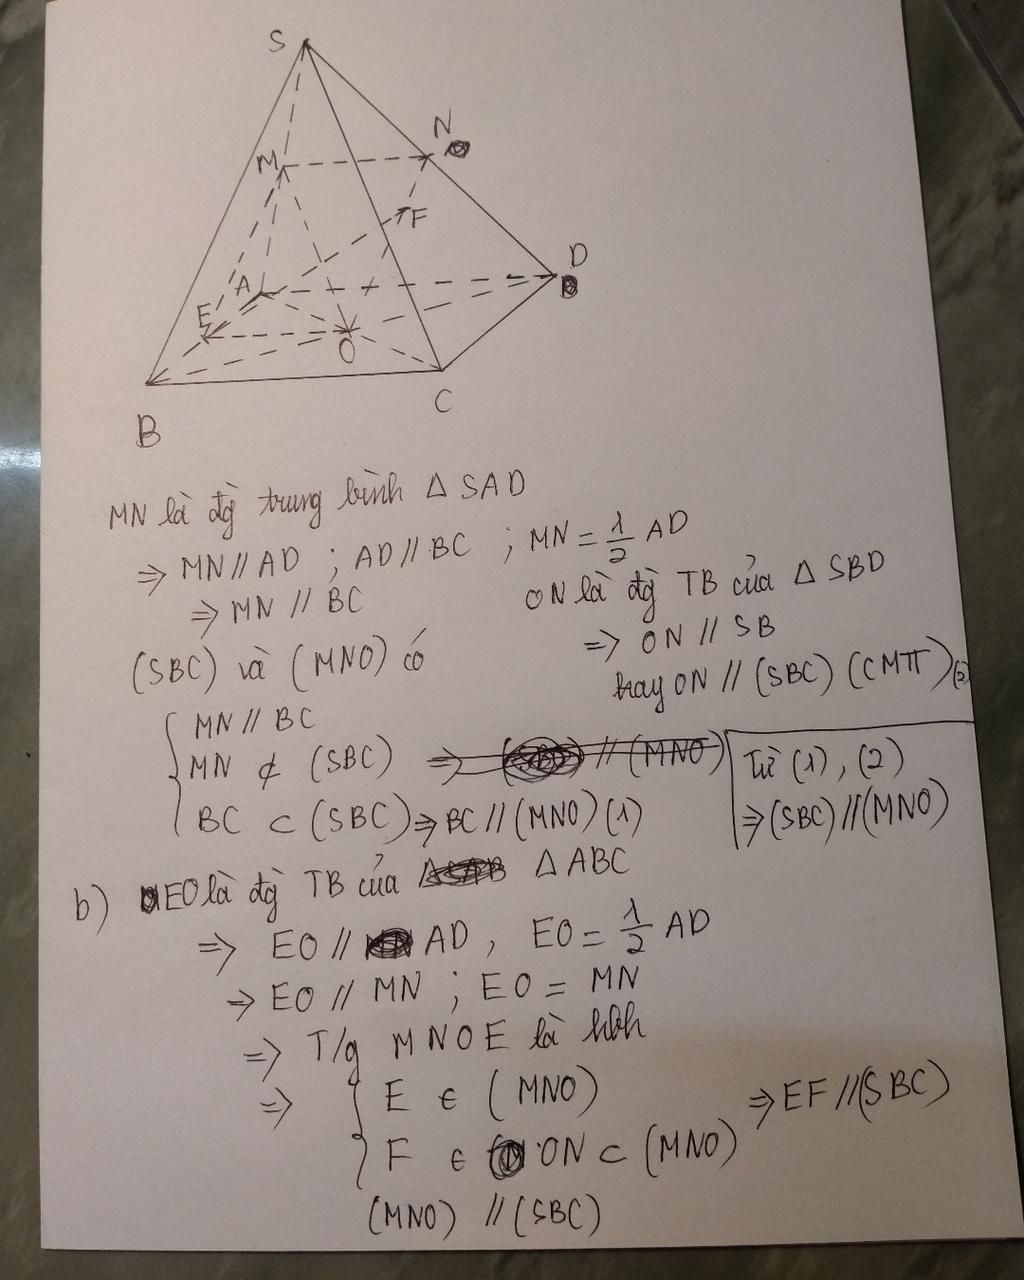 S
N
M
F
D
A
E
O
B
C
MN là đg trung bình Δ SAD
⇒ MN // AD ; AD // BC ; MN = 1/2 AD
⇒ MN // BC
ON là đg TB của Δ SBD
⇒ ON // SB
hay ON // (SBC) (CMTT) (2)
(SBC) và (MNO) có
MN // BC
MN ⊄ (SBC) ⇒ // (MNO)
BC ⊂ (SBC) ⇒ BC // (MNO) (1)
Từ (1), (2)
⇒ (SBC) // (MNO)
b) EO là đg TB của Δ ABC
⇒ EO // AD, EO = 1/2 AD
⇒ EO // MN ; EO = MN
⇒ T/g MNOE là hbh
⇒ E ∈ (MNO)
F ∈ ON ⊂ (MNO)
(MNO) // (SBC)
⇒ EF // (SBC)